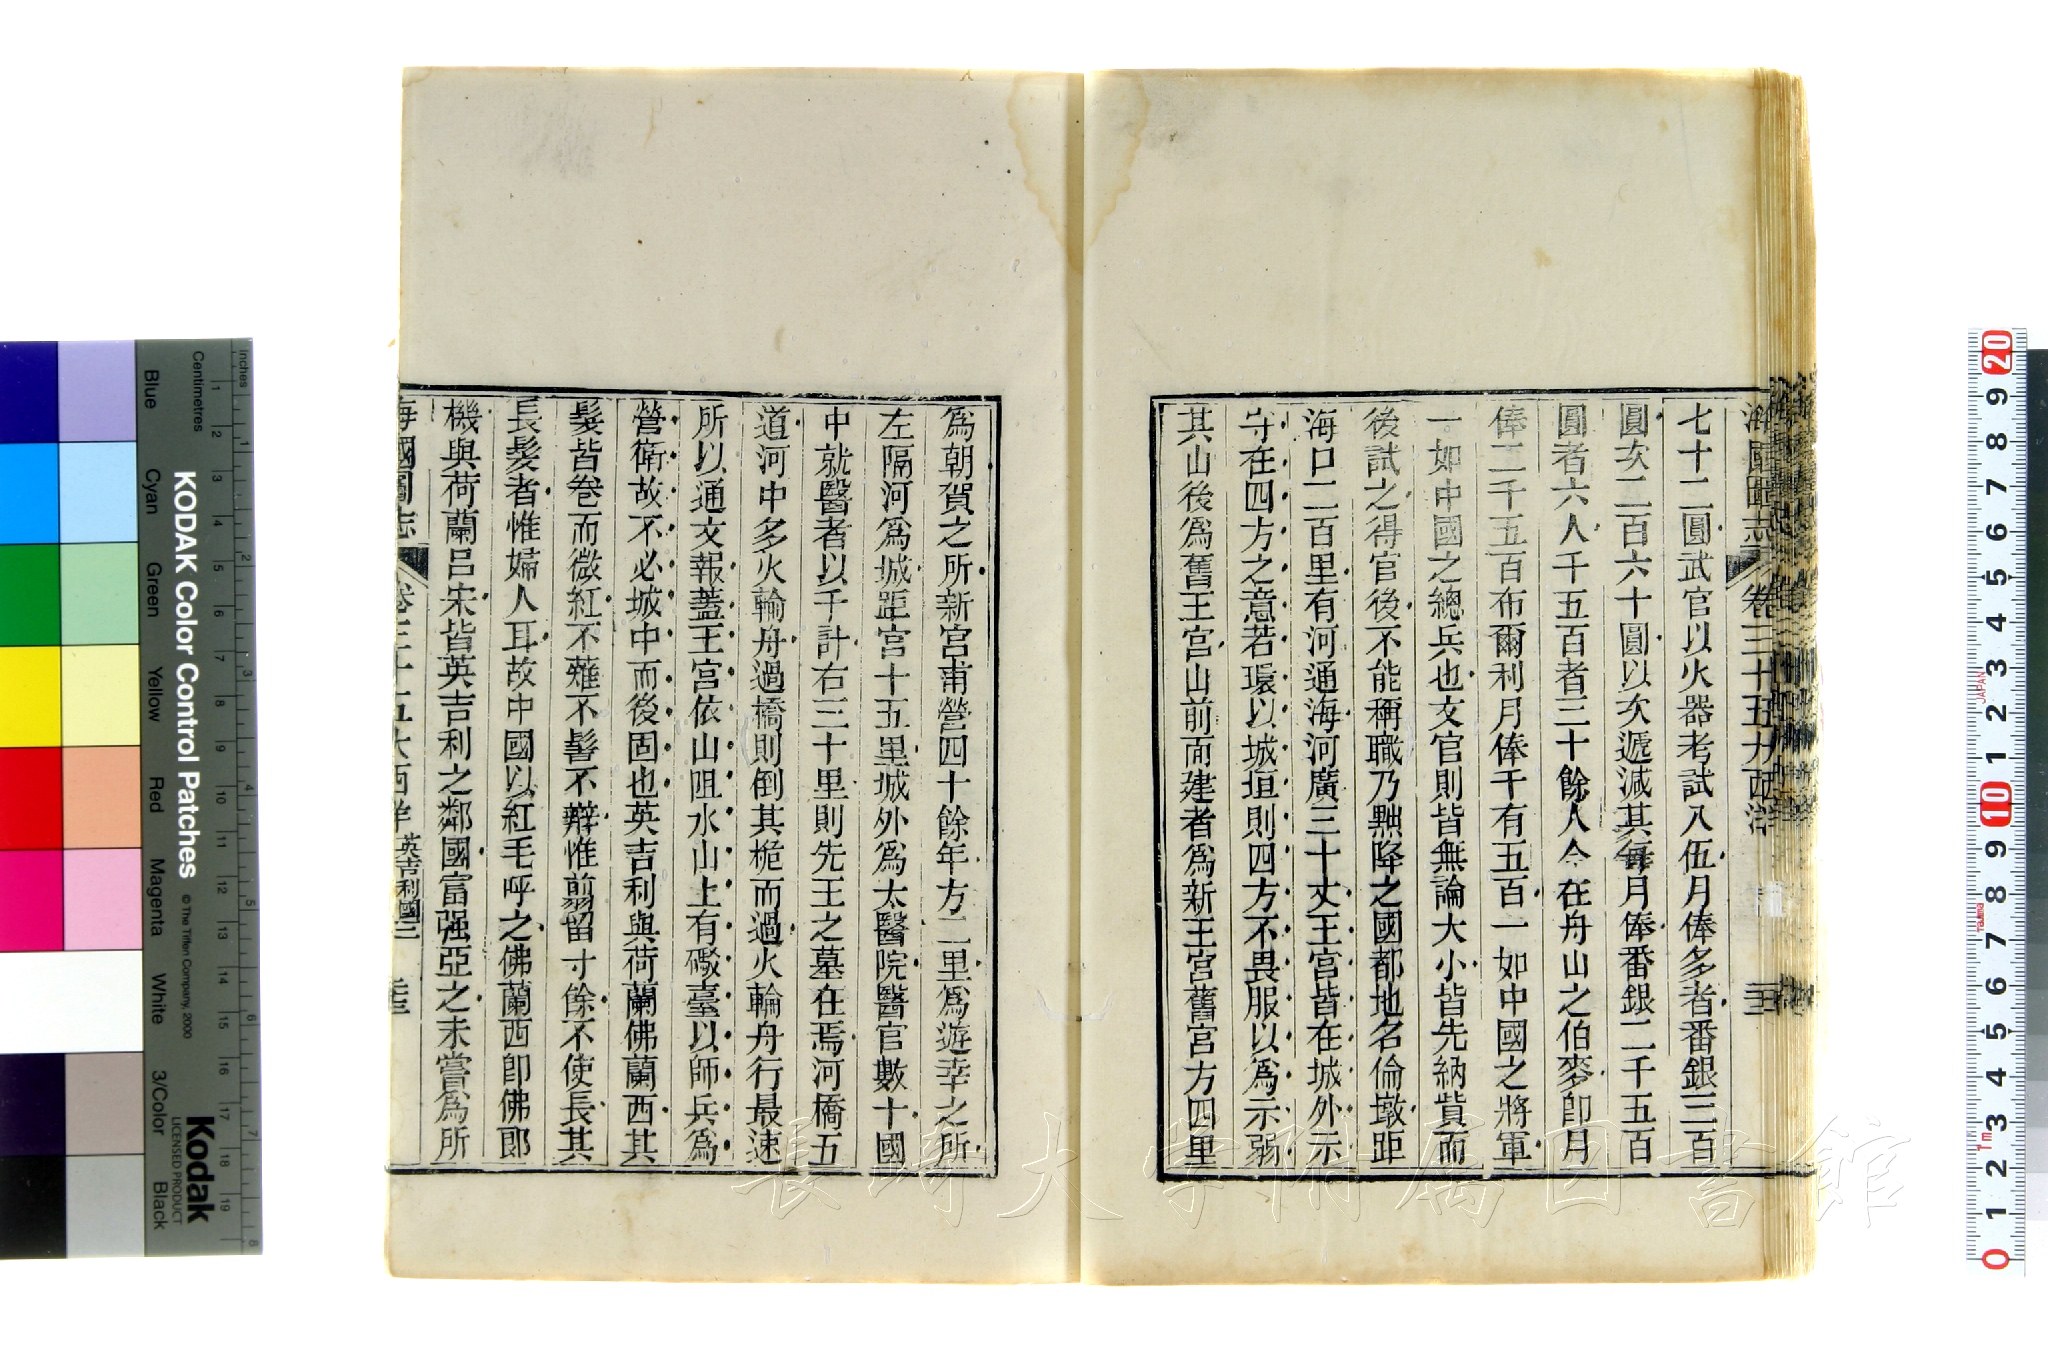 海國圖志 卷三十五 大西洋
七十二圓武官以火器考試入伍月俸多者番銀三百
圓次二百六十圓以次遞減其每月俸番銀二千五百
圓者六人千五百者三十餘人今在舟山之伯麥卽月
俸二千五百布爾利月俸千有五百一如中國之將軍
一如中國之總兵也文官則皆無論大小皆先納貲而
後試之得官後不能稱職乃黜降之國都地名倫墩距
海口二百里有河通海河廣三十丈王宮皆在城外示
守在四方之意若環以城垣則四方不畏服以爲示弱
其山後爲舊王宮山前面建者爲新王宮舊宮方四里
爲朝賀之所新宮甫營四十餘年方二里爲遊幸之所
左隔河爲城距宮十五里城外爲太醫院醫官數十國
中就醫者以千計右三十里則先王之墓在焉河橋五
道河中多火輪舟過橋則倒其桅而過火輪舟行最速
所以通文報蓋王宮依山阻水山上有礮臺以師兵爲
營衛故不必城中而後固也英吉利與荷蘭佛蘭西其
髮皆卷而微紅不薙不髻不辮惟翦留寸餘不使長其
長髮者惟婦人耳故中國以紅毛呼之佛蘭西卽佛郎
機與荷蘭呂宋皆英吉利之鄰國富强亞之未嘗爲所
海國圖志 卷三十五 大西洋 英吉利國三
長崎大学附属図書館
KODAK Color Control Patches
© The Tiffen Company, 2000
Kodak
LICENSED PRODUCT
Inches
Centimetres
Blue
Cyan
Green
Yellow
Red
Magenta
White
3/Color
Black
1 2 3 4 5 6 7 8
1 2 3 4 5 6 7 8 9 10 11 12 13 14 15 16 17 18 19
20 9 8 7 6 5 4 3 2 1 10 9 8 7 6 5 4 3 2 1 0
JAPAN